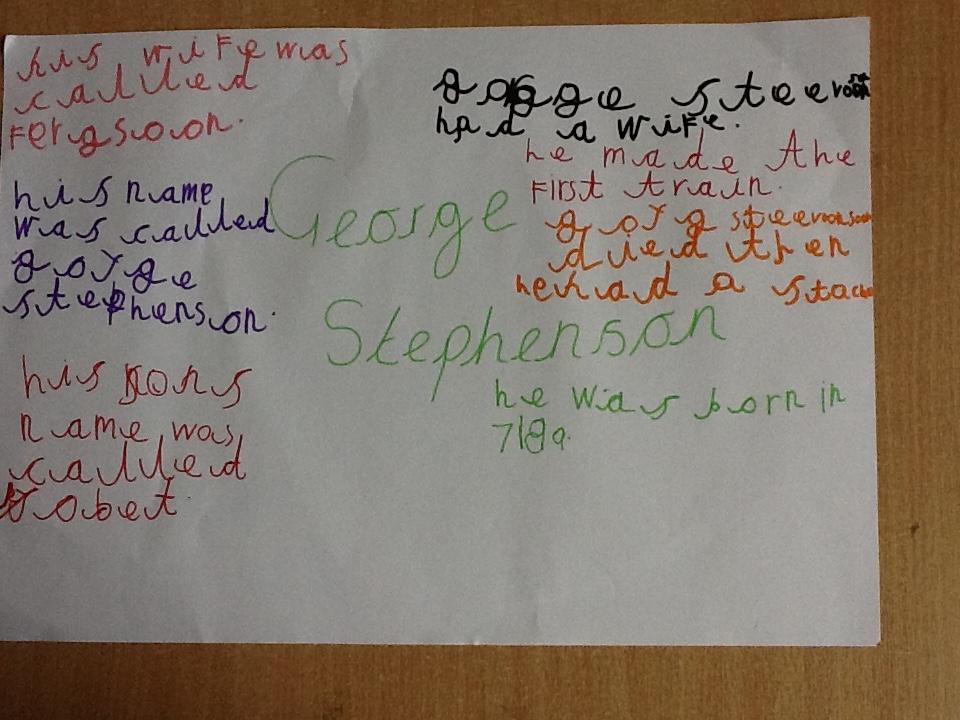 his wife was
called
Fergsoon.
his name
was called
gorge
stephenson.
his sons
name was
called
robet
George
Stephenson
gorge steeroon
had a wife.
he made the
First train.
gorg steeroonsoon
died then
he had a stach
he was born in
7189.